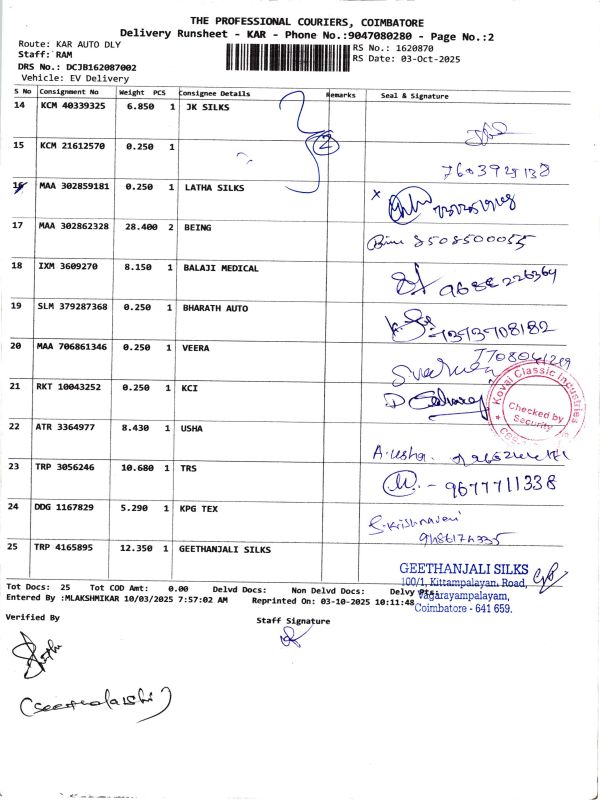 THE PROFESSIONAL COURIERS, COIMBATORE
Delivery Runsheet - KAR - Phone No.:9047080280 - Page No.:2
Route: KAR AUTO DLY
RS No.: 1620870
Staff: RAM
RS Date: 03-Oct-2025
DRS No.: DCJB162087002
Vehicle: EV Delivery
S No Consignment No Weight PCS Consignee Details Remarks Seal & Signature
14 KCM 40339325 6.850 1 JK SILKS
2
15 KCM 21612570 0.250 1
7603925138
16 MAA 302859181 0.250 1 LATHA SILKS
x
17 MAA 302862328 28.400 2 BEING
8508500055
18 IXM 3609270 8.150 1 BALAJI MEDICAL
19 SLM 379287368 0.250 1 BHARATH AUTO
7373708182
20 MAA 706861346 0.250 1 VEERA
21 RKT 10043252 0.250 1 KCI
Kovai Classic Industries
Checked by
Security
22 ATR 3364977 8.430 1 USHA
A.usha.
23 TRP 3056246 10.680 1 TRS
- 9677711338
24 DDG 1167829 5.290 1 KPG TEX
S.Krishnaveni
25 TRP 4165895 12.350 1 GEETHANJALI SILKS
GEETHANJALI SILKS
100/1, Kittampalayan. Road,
Vagarayampalayam,
Coimbatore - 641 659.
Tot Docs: 25 Tot COD Amt: 0.00 Delvd Docs: Non Delvd Docs: Delvy
Entered By :MLAKSHMIKAR 10/03/2025 7:57:02 AM Reprinted On: 03-10-2025 10:11:48
Verified By
Staff Signature